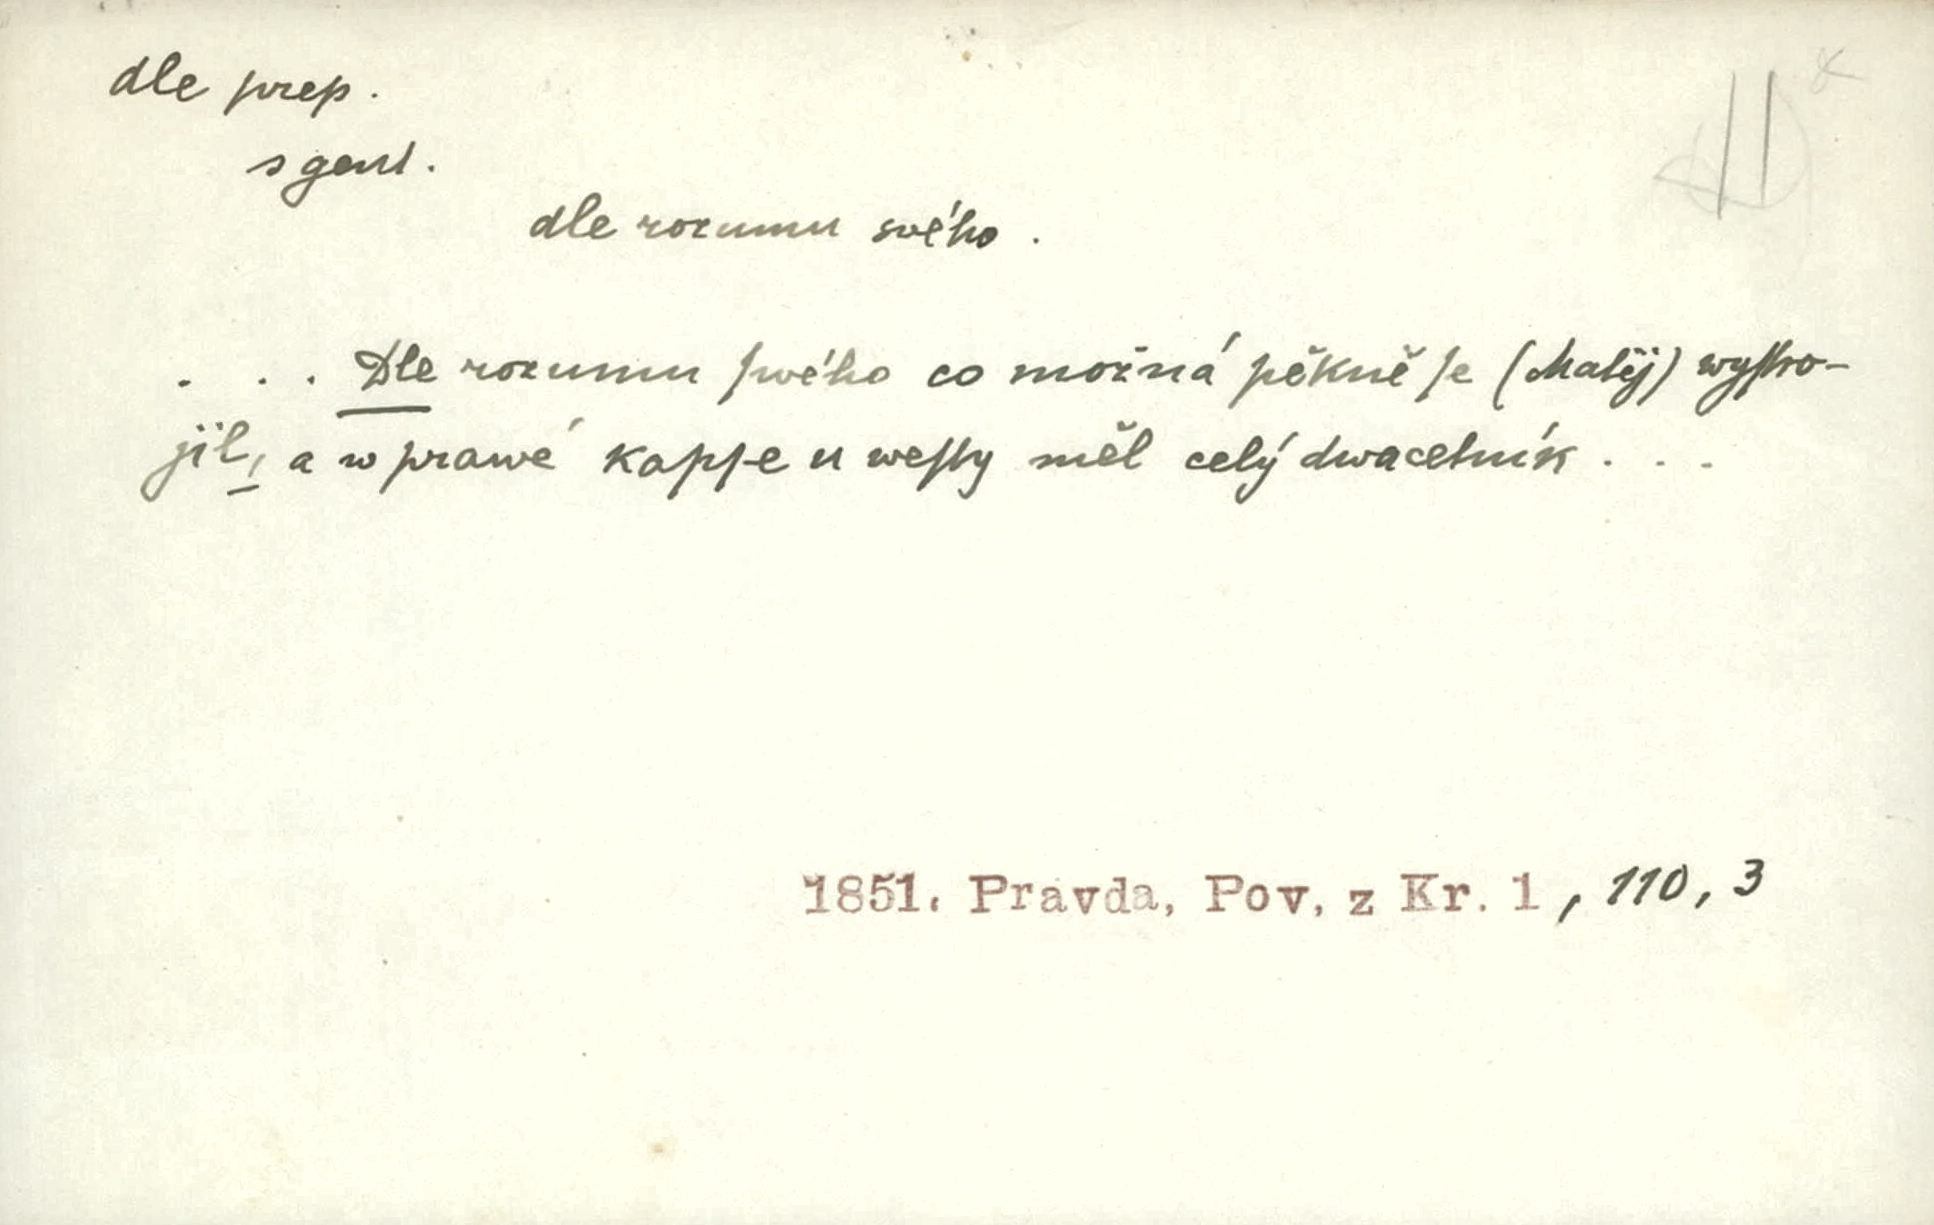 dle prep.
s gent.
dle rozumu svého.
. . . Dle rozumu ſwého co možná pěkně ſe (Matěj) wyſtro-
jil, a w prawé kapſe u weſty měl celý dwacetník . . .
1851. Pravda, Pov. z Kr. 1, 110, 3